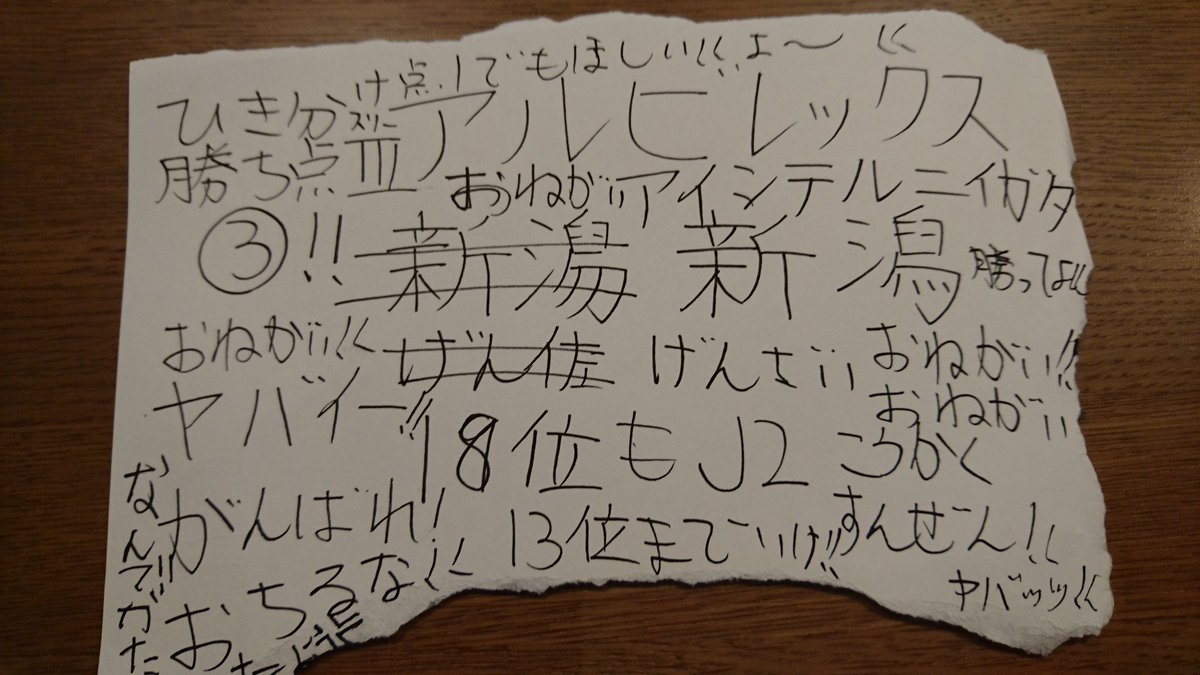 ひき分け点1でもほしい!!よ〜!!
アルビレックス
勝ち点Ⅲ
スリー
おねがい
アイシテルニイガタ
③!!
新潟 新潟
勝ってよ!!
おねがい!!
げん佐
げんざい
おねがい!!
おねがい
ヤバイー!!
18位もJ2こうかく
がんばれ!
13位までいけ!!
すんせこん!!
おちるな!!
ヤバッッ!!
なんで!!
がた